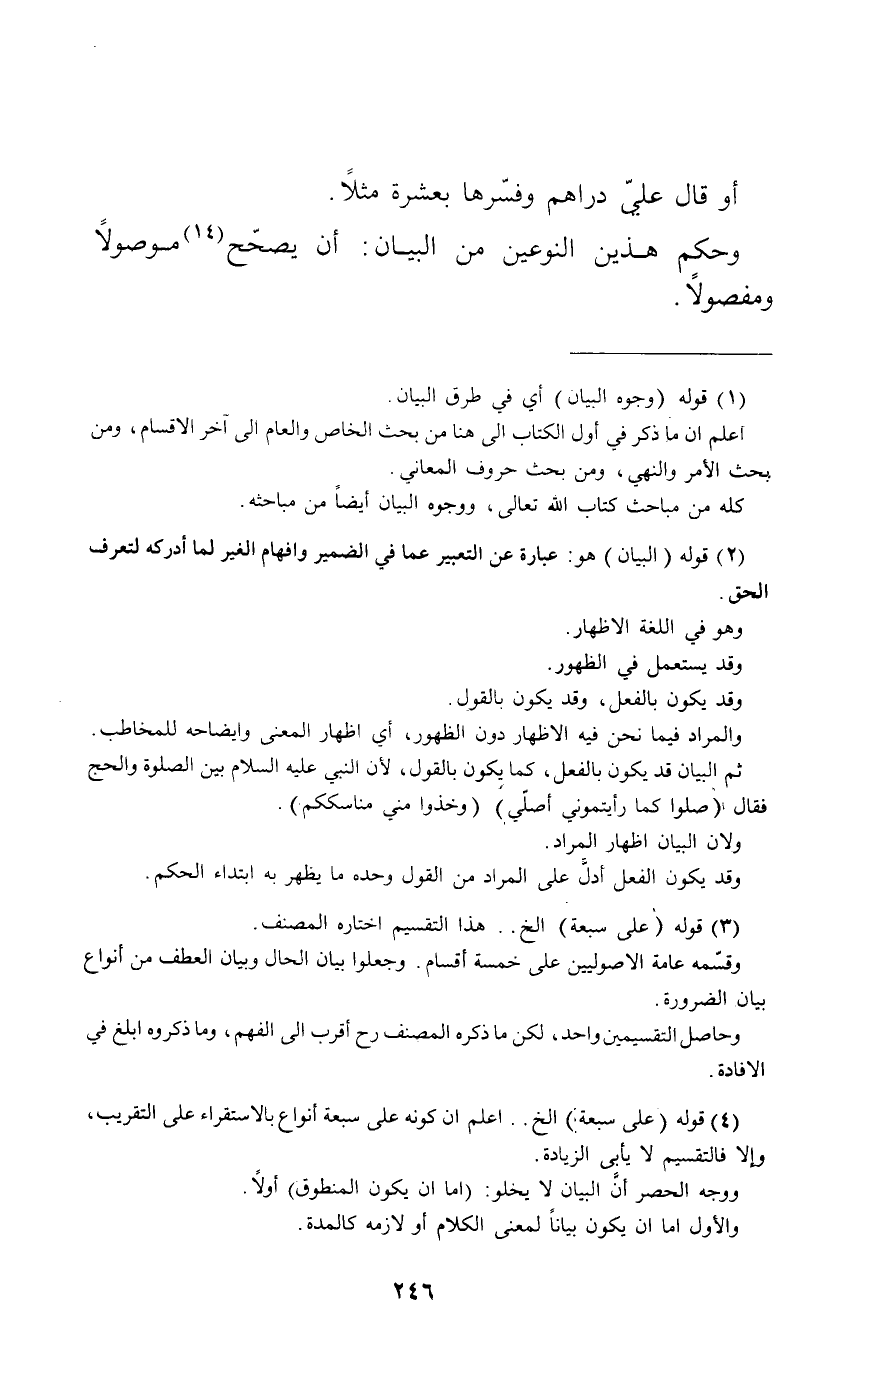 أو قال عليّ دراهم وفسّرها بعشرة مثلاً.
وحكم هـذين النوعين من البيـان: أن يصحّح(١٤) مـوصولاً
ومفصولاً.
(١) قوله (وجوه البيان) أي في طرق البيان.
اعلم ان ما ذكر في أول الكتاب الى هنا من بحث الخاص والعام الى آخر الاقسام، ومن
بحث الأمر والنهي، ومن بحث حروف المعاني.
كله من مباحث كتاب الله تعالى، ووجوه البيان أيضاً من مباحثه.
(٢) قوله (البيان) هو: عبارة عن التعبير عما في الضمير وافهام الغير لما أدركه لتعرف
الحق.
وهو في اللغة الاظهار.
وقد يستعمل في الظهور.
وقد يكون بالفعل، وقد يكون بالقول.
والمراد فيما نحن فيه الاظهار دون الظهور، أي اظهار المعنى وايضاحه للمخاطب.
ثم البيان قد يكون بالفعل، كما يكون بالقول، لأن النبي عليه السلام بين الصلوة والحج
فقال (صلوا كما رأيتموني أصلّي) (وخذوا مني مناسككم).
ولان البيان اظهار المراد.
وقد يكون الفعل أدلَّ على المراد من القول وحده ما يظهر به ابتداء الحكم.
(٣) قوله (على سبعة) الخ.. هذا التقسيم اختاره المصنف.
وقسّمه عامة الاصوليين على خمسة أقسام. وجعلوا بيان الحال وبيان العطف من أنواع
بيان الضرورة.
وحاصل التقسيمين واحد، لكن ما ذكره المصنف رح أقرب الى الفهم، وما ذكروه ابلغ في
الافادة.
(٤) قوله (على سبعة) الخ.. اعلم ان كونه على سبعة أنواع بالاستقراء على التقريب،
وإلا فالتقسيم لا يأبى الزيادة.
ووجه الحصر أنَّ البيان لا يخلو: (اما ان يكون المنطوق) أولاً.
والأول اما ان يكون بياناً لمعنى الكلام أو لازمه كالمدة.
٢٤٦